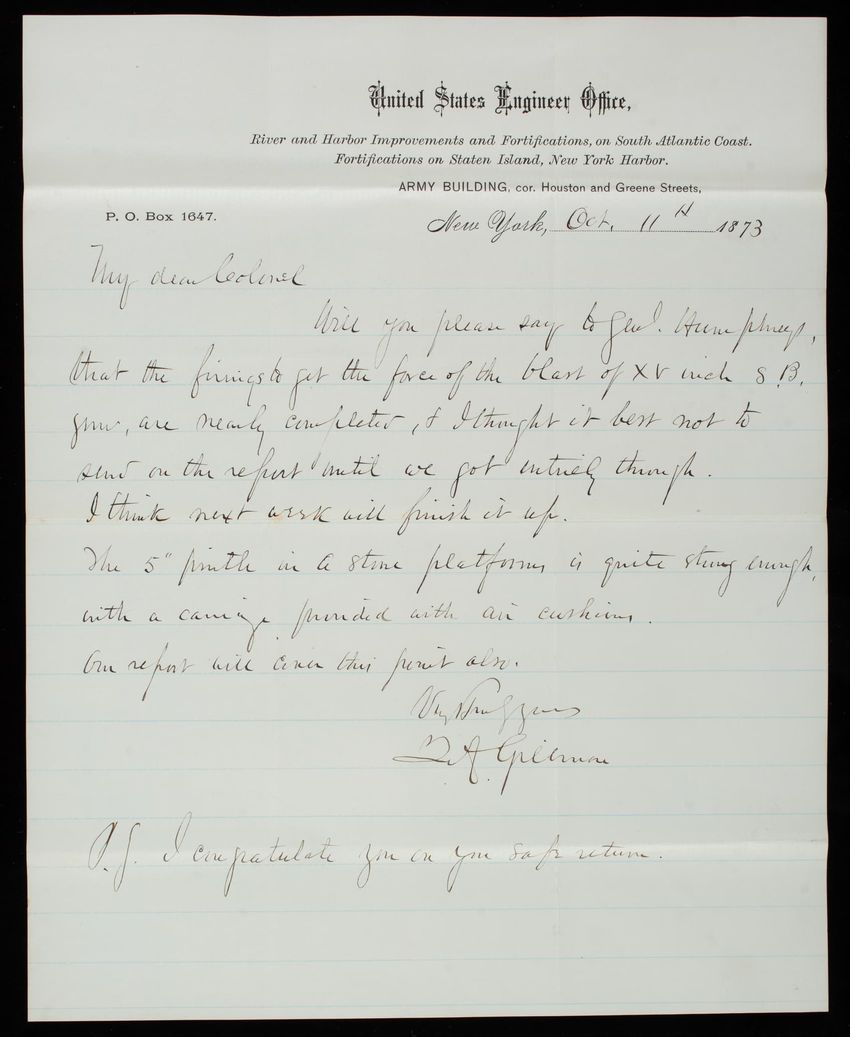 United States Engineer Office,
River and Harbor Improvements and Fortifications, on South Atlantic Coast.
Fortifications on Staten Island, New York Harbor.
ARMY BUILDING, cor. Houston and Greene Streets,
P. O. Box 1647.
New York, Oct. 11th 1873
My dear Colonel
Will you please say to Genl. Humphreys,
that the firings to get the force of the blast of XV inch S.B.
guns, are nearly completed, & I thought it best not to
send on the report until we got entirely through.
I think next week will finish it up.
The 5" pintle in a stone platform, is quite strong enough,
with a carriage provided with air cushions.
Our report will cover this point also.
Very Truly Yours
Q. A. Gillmore
P.S. I congratulate you on your safe return.